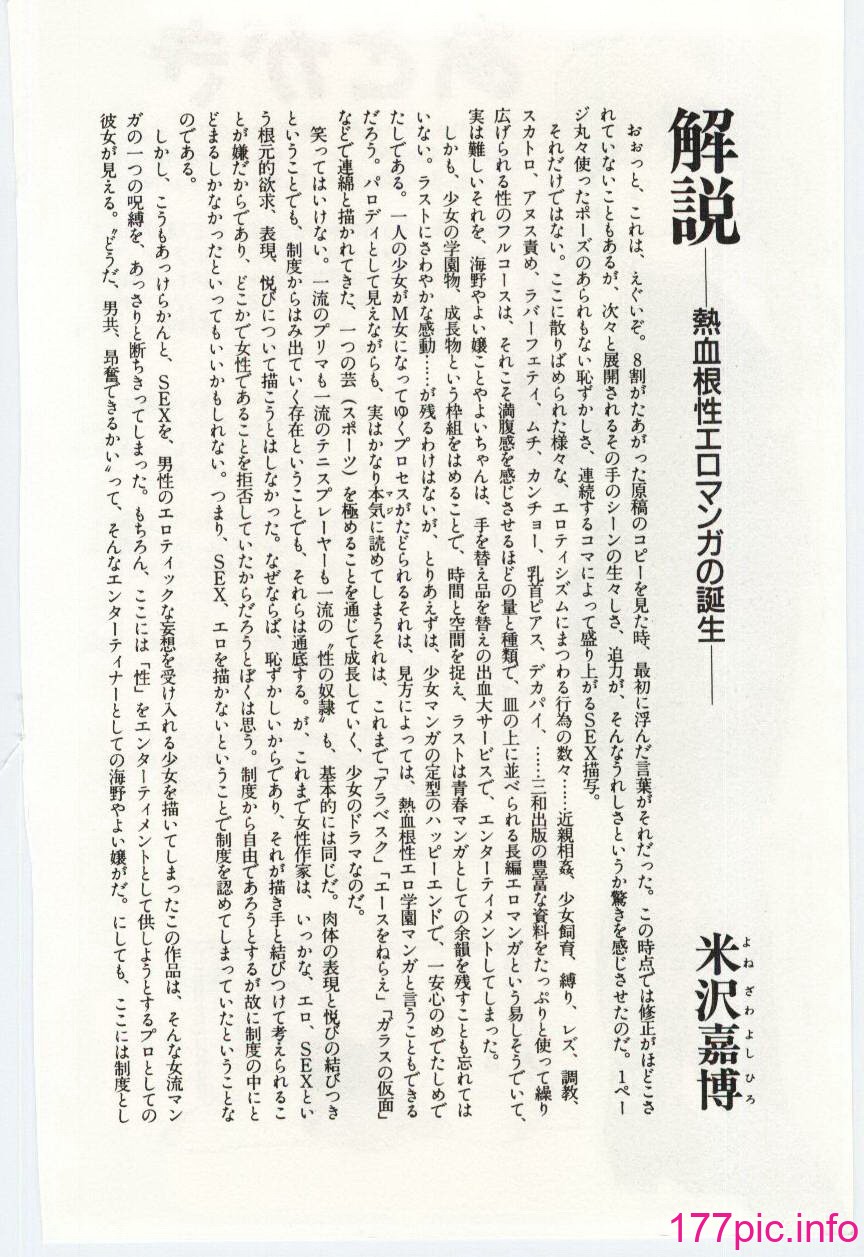 解説
――熱血根性エロマンガの誕生――
米沢嘉博
よねざわよしひろ
おおっと、これは、えぐいぞ。8割がたあがった原稿のコピーを見た時、最初に浮んだ言葉がそれだった。この時点では修正がほどこさ
れていないこともあるが、次々と展開されるその手のシーンの生々しさ、迫力が、そんなうれしさというか驚きを感じさせたのだ。1ペー
ジ丸々使ったポーズのあられもない恥ずかしさ、連続するコマによって盛り上がるSEX描写。
それだけではない。ここに散りばめられた様々な、エロティシズムにまつわる行為の数々……近親相姦、少女飼育、縛り、レズ、調教、
スカトロ、アヌス責め、ラバーフェティ、ムチ、カンチョー、乳首ピアス、デカパイ、……三和出版の豊富な資料をたっぷりと使って繰り
広げられる性のフルコースは、それこそ満腹感を感じさせるほどの量と種類で、皿の上に並べられる長編エロマンガという易しそうでいて、
実は難しいそれを、海野やよい嬢ことやよいちゃんは、手を替え品を替えの出血大サービスで、エンターティメントしてしまった。
しかも、少女の学園物、成長物という枠組をはめることで、時間と空間を捉え、ラストは青春マンガとしての余韻を残すことも忘れては
いない。ラストにさわやかな感動……が残るわけはないが、とりあえずは、少女マンガの定型のハッピーエンドで、一安心のめでたしめで
たしである。一人の少女がM女になってゆくプロセスがたどられるそれは、見方によっては、熱血根性エロ学園マンガと言うこともできる
だろう。パロディとして見えながらも、実はかなり本気に読めてしまうそれは、これまで「アラベスク」「エースをねらえ」「ガラスの仮面」
マジ
などで連綿と描かれてきた、一つの芸(スポーツ)を極めることを通じて成長していく、少女のドラマなのだ。
笑ってはいけない。一流のプリマも一流のテニスプレーヤーも一流の〝性の奴隷〟も、基本的には同じだ。肉体の表現と悦びの結びつき
ということでも、制度からはみ出ていく存在ということでも、それらは通底する。が、これまで女性作家は、いっかな、エロ、SEXとい
う根元的欲求、表現、悦びについて描こうとはしなかった。なぜならば、恥ずかしいからであり、それが描き手と結びつけて考えられるこ
とが嫌だからであり、どこかで女性であることを拒否していたからだろうとぼくは思う。制度から自由であろうとするが故に制度の中にと
どまるしかなかったといってもいいかもしれない。つまり、SEX、エロを描かないということで制度を認めてしまっていたということな
のである。
しかし、こうもあっけらかんと、SEXを、男性のエロティックな妄想を受け入れる少女を描いてしまったこの作品は、そんな女流マン
ガの一つの呪縛を、あっさりと断ちきってしまった。もちろん、ここには「性」をエンターティメントとして供しようとするプロとしての
彼女が見える。〝どうだ、男共、昂奮できるかい〟って、そんなエンターティナーとしての海野やよい嬢がだ。にしても、ここには制度とし
177pic.info